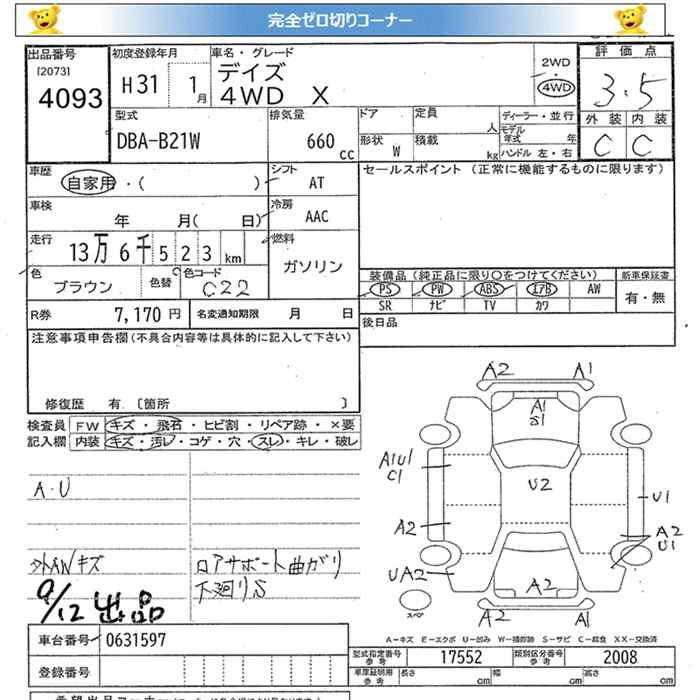 完全ゼロ切りコーナー
出品番号
[2073]
4093
初度登録年月
H31 1月
車名・グレード
デイズ
4WD X
2WD
・
4WD
評価点
3.5
外装 内装
C C
型式
DBA-B21W
排気量
660 cc
ドア
定員
人
形状
W
積載
kg
ディーラー・並行
モデル年式 年
ハンドル 左・右
車歴
自家用・( )
シフト
AT
セールスポイント (正常に機能するものに限ります)
車検
年 月( 日)
冷房
AAC
走行
13万 6千 5 2 3 km
燃料
ガソリン
色
ブラウン
色替
色コード
C22
装備品 (純正品に限り○をつけてください)
新車保証書
PS PW ABS エアB AW
有・無
SR ナビ TV カワ
R券 7,170 円
名変通知期限 月 日
後日品
注意事項申告欄(不具合内容等は具体的に記入して下さい)
修復歴 有. 〔箇所 〕
検査員記入欄
FW キズ・飛石・ヒビ割・リペア跡・×要
内装 キズ・汚レ・コゲ・穴・スレ・キレ・破レ
A・U
外AWキズ
9/12 出品
ロアサポート曲がり
下廻りS
A2 A1
A1
S1
A1U1
C1
U2
U1
A2
A2
U1
UA2
A2
スペア
A2 A1
A-キズ E-エクボ U-凹み W-補修跡 S-サビ C-腐食 XX-交換済
車台番号 0631597
登録番号
型式指定番号
参考
17552
類別区分番号
参考
2008
車庫証明用
参考
長さ cm
幅 cm
高さ cm